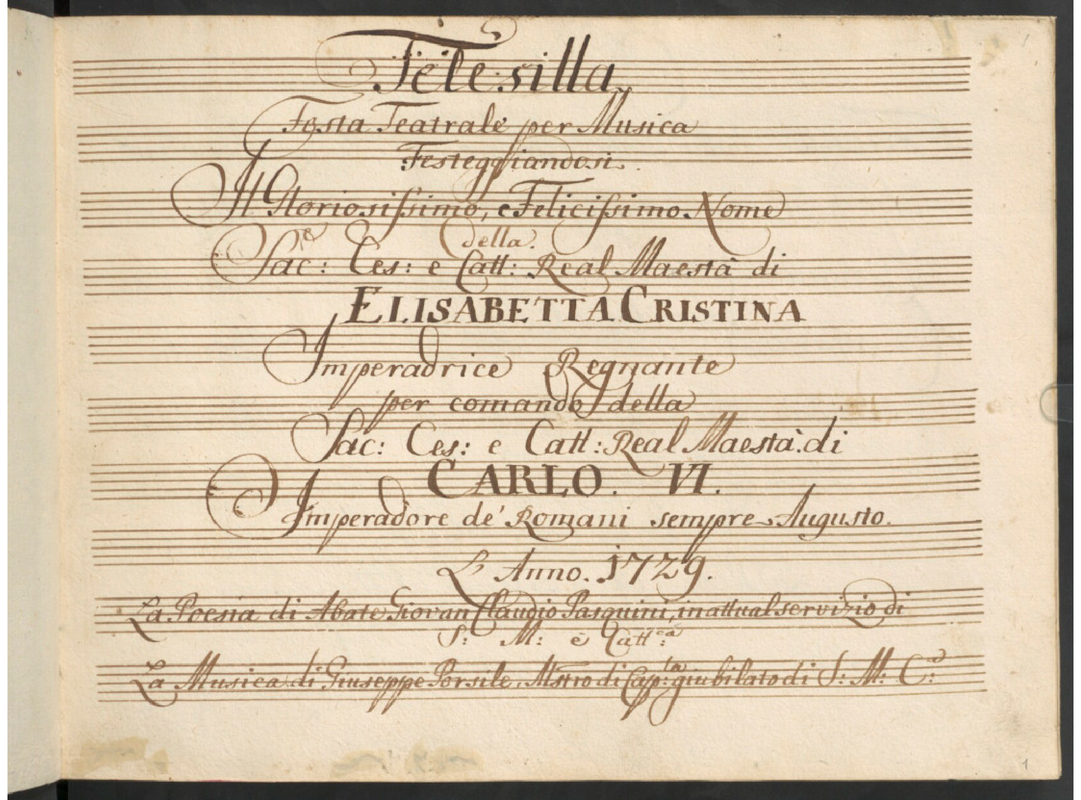 Telesilla
Festa Teatrale per Musica
Festeggiandosi
Il Gloriosissimo, e Felicissimo Nome
della
Sac: Ces: e Catt: Real Maestà di
ELISABETTA CRISTINA
Imperadrice Regnante
per comando della
Sac: Ces: e Catt: Real Maestà di
CARLO. VI.
Imperadore de' Romani sempre Augusto.
L'Anno. 1729.
La Poesia di Abate Giovan Claudio Pasquini, in attual servizio di
S: M: è Catt:ca
La Musica di Giuseppe Porsile, Mstro di Cap:la giubilato di S: M: C:a
1